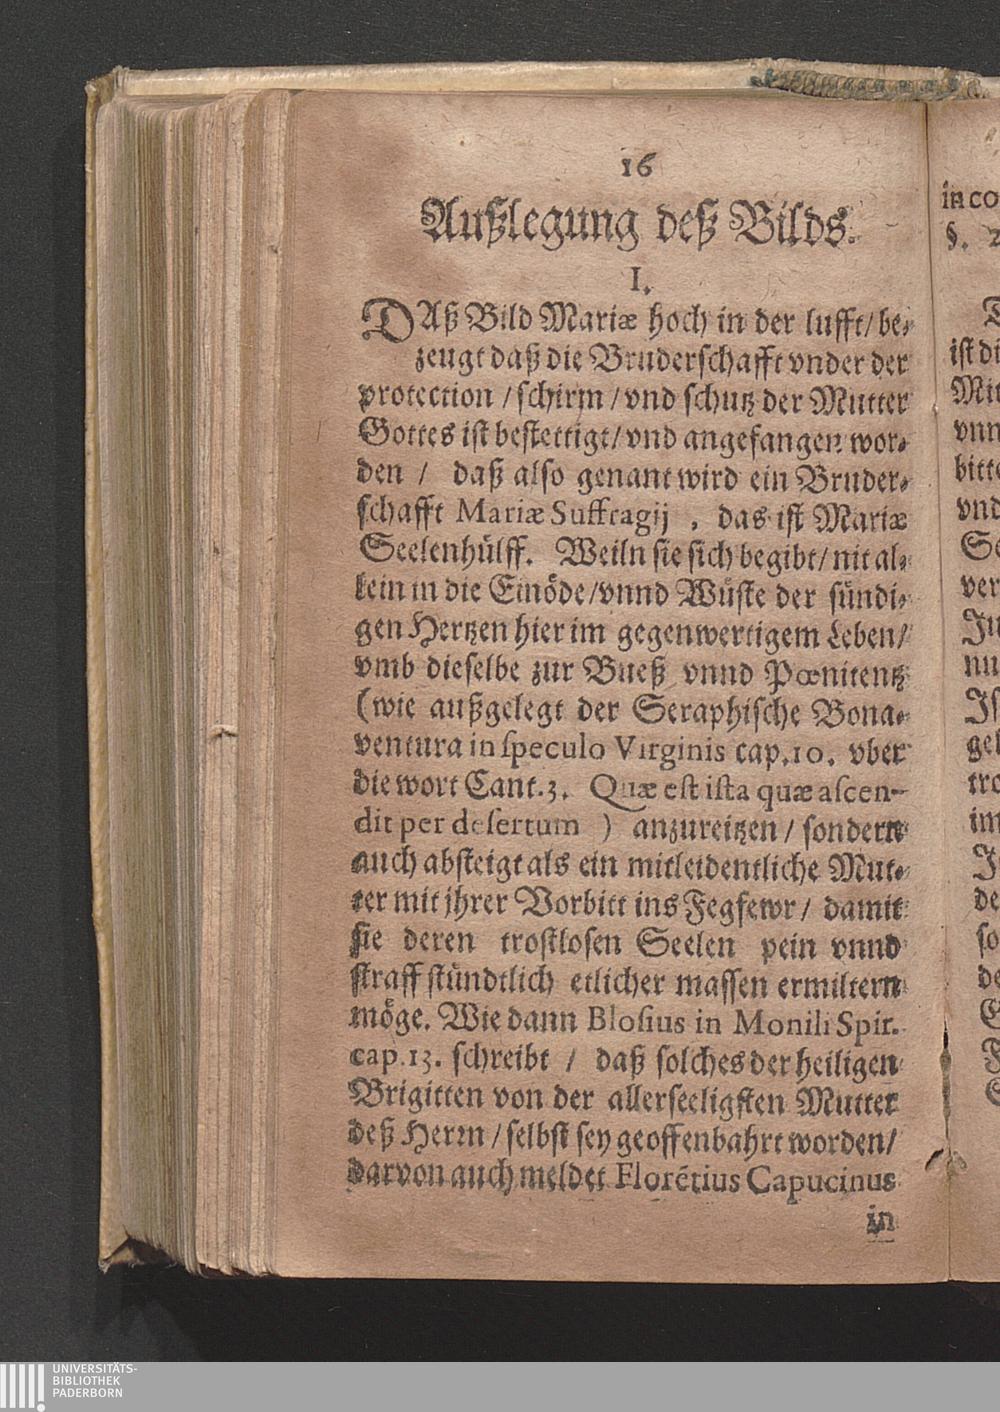 16
Außlegung deß Bilds.
I.
DAß Bild Mariæ hoch in der lufft/ be-
zeugt daß die Bruderschafft vnder der
protection / schirm / vnd schutz der Mutter
Gottes ist bestettigt/ vnd angefangen wor-
den / daß also genant wird ein Bruder-
schafft Mariæ Suffragij , das ist Mariæ
Seelenhülff. Weiln sie sich begibt/ nit al-
lein in die Einöde/vnnd Wüste der sündi-
gen Hertzen hier im gegenwertigem Leben/
vmb dieselbe zur Bueß vnnd Pœnitentz
(wie außgelegt der Seraphische Bona-
ventura in speculo Virginis cap.10. vber
die wort Cant.3. Quæ est ista quæ ascen-
dit per desertum ) anzureitzen / sondern
auch absteigt als ein mitleidentliche Mut-
ter mit jhrer Vorbitt ins Fegfewr / damit
sie deren trostlosen Seelen pein vnnd
straff stündtlich etlicher massen ermiltern
möge. Wie dann Blosius in Monili Spir.
cap.13. schreibt / daß solches der heiligen
Brigitten von der allerseeligsten Mutter
deß Herrn / selbst sey geoffenbahrt worden/
darvon auch meldet Florẽtius Capucinus
in
in co
§. 2
ist di
Mit
vnn
bitte
vnd
ver
nu
gel
tro
im
de
so
de
UNIVERSITÄTS-
BIBLIOTHEK
PADERBORN